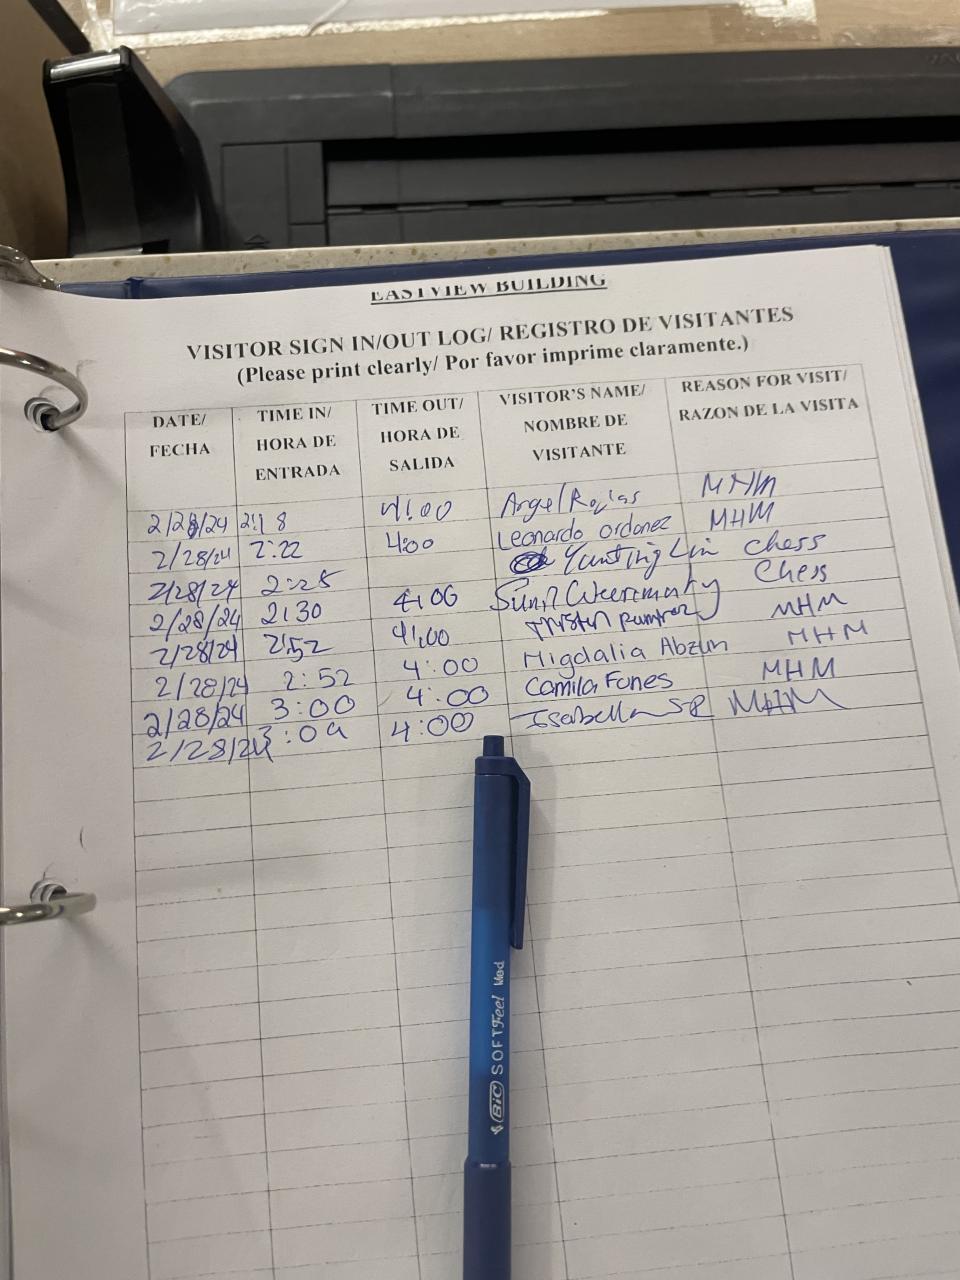 EASTVIEW BUILDING
VISITOR SIGN IN/OUT LOG/ REGISTRO DE VISITANTES
(Please print clearly/ Por favor imprime claramente.)
DATE/ FECHA TIME IN/ HORA DE ENTRADA TIME OUT/ HORA DE SALIDA VISITOR'S NAME/ NOMBRE DE VISITANTE REASON FOR VISIT/ RAZON DE LA VISITA
2/28/24 2:18 4:00 Angel Rojas MHM
2/28/24 2:22 4:00 Leonardo Ordonez MHM
2/28/24 2:28 Yunting Lin Chess
2/28/24 2:30 4:06 Chess
2/28/24 2:52 4:00 MHM
2/28/24 2:52 4:00 Migdalia MHM
2/28/24 3:00 4:00 Camila Fones MHM
2/28/24 3:09 4:00 Isabella MHM
BIC SOFTFeel Med